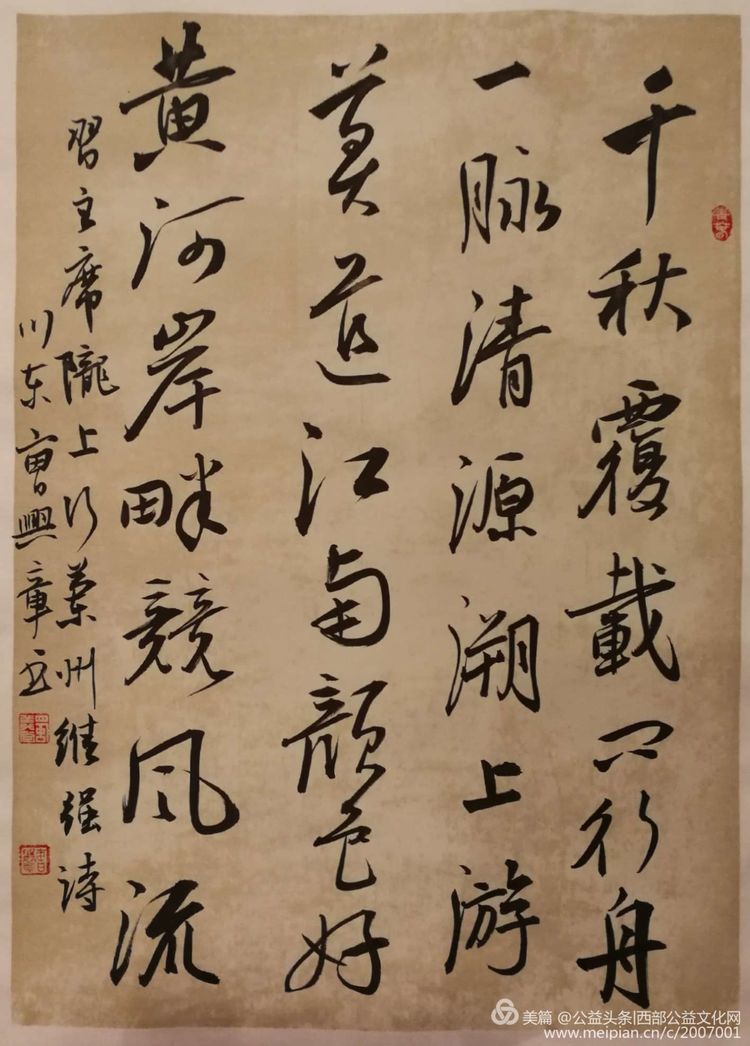 千秋覆载只行舟
一脉清源溯上游
莫道江南颜色好
黄河岸畔競风流
習主席隴上行蘭州维强诗
川东曹興章书
美篇 @公益头条|西部公益文化网
www.meipian.cn/c/2007001